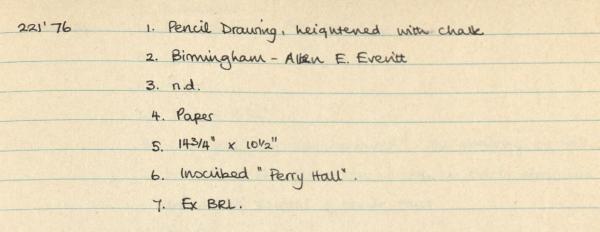 221'76 1. Pencil Drawing, heightened with chalk
2. Birmingham - Allen E. Everitt
3. n.d.
4. Paper
5. 14 3/4" x 10 1/2"
6. Inscribed "Perry Hall".
7. Ex BRL.